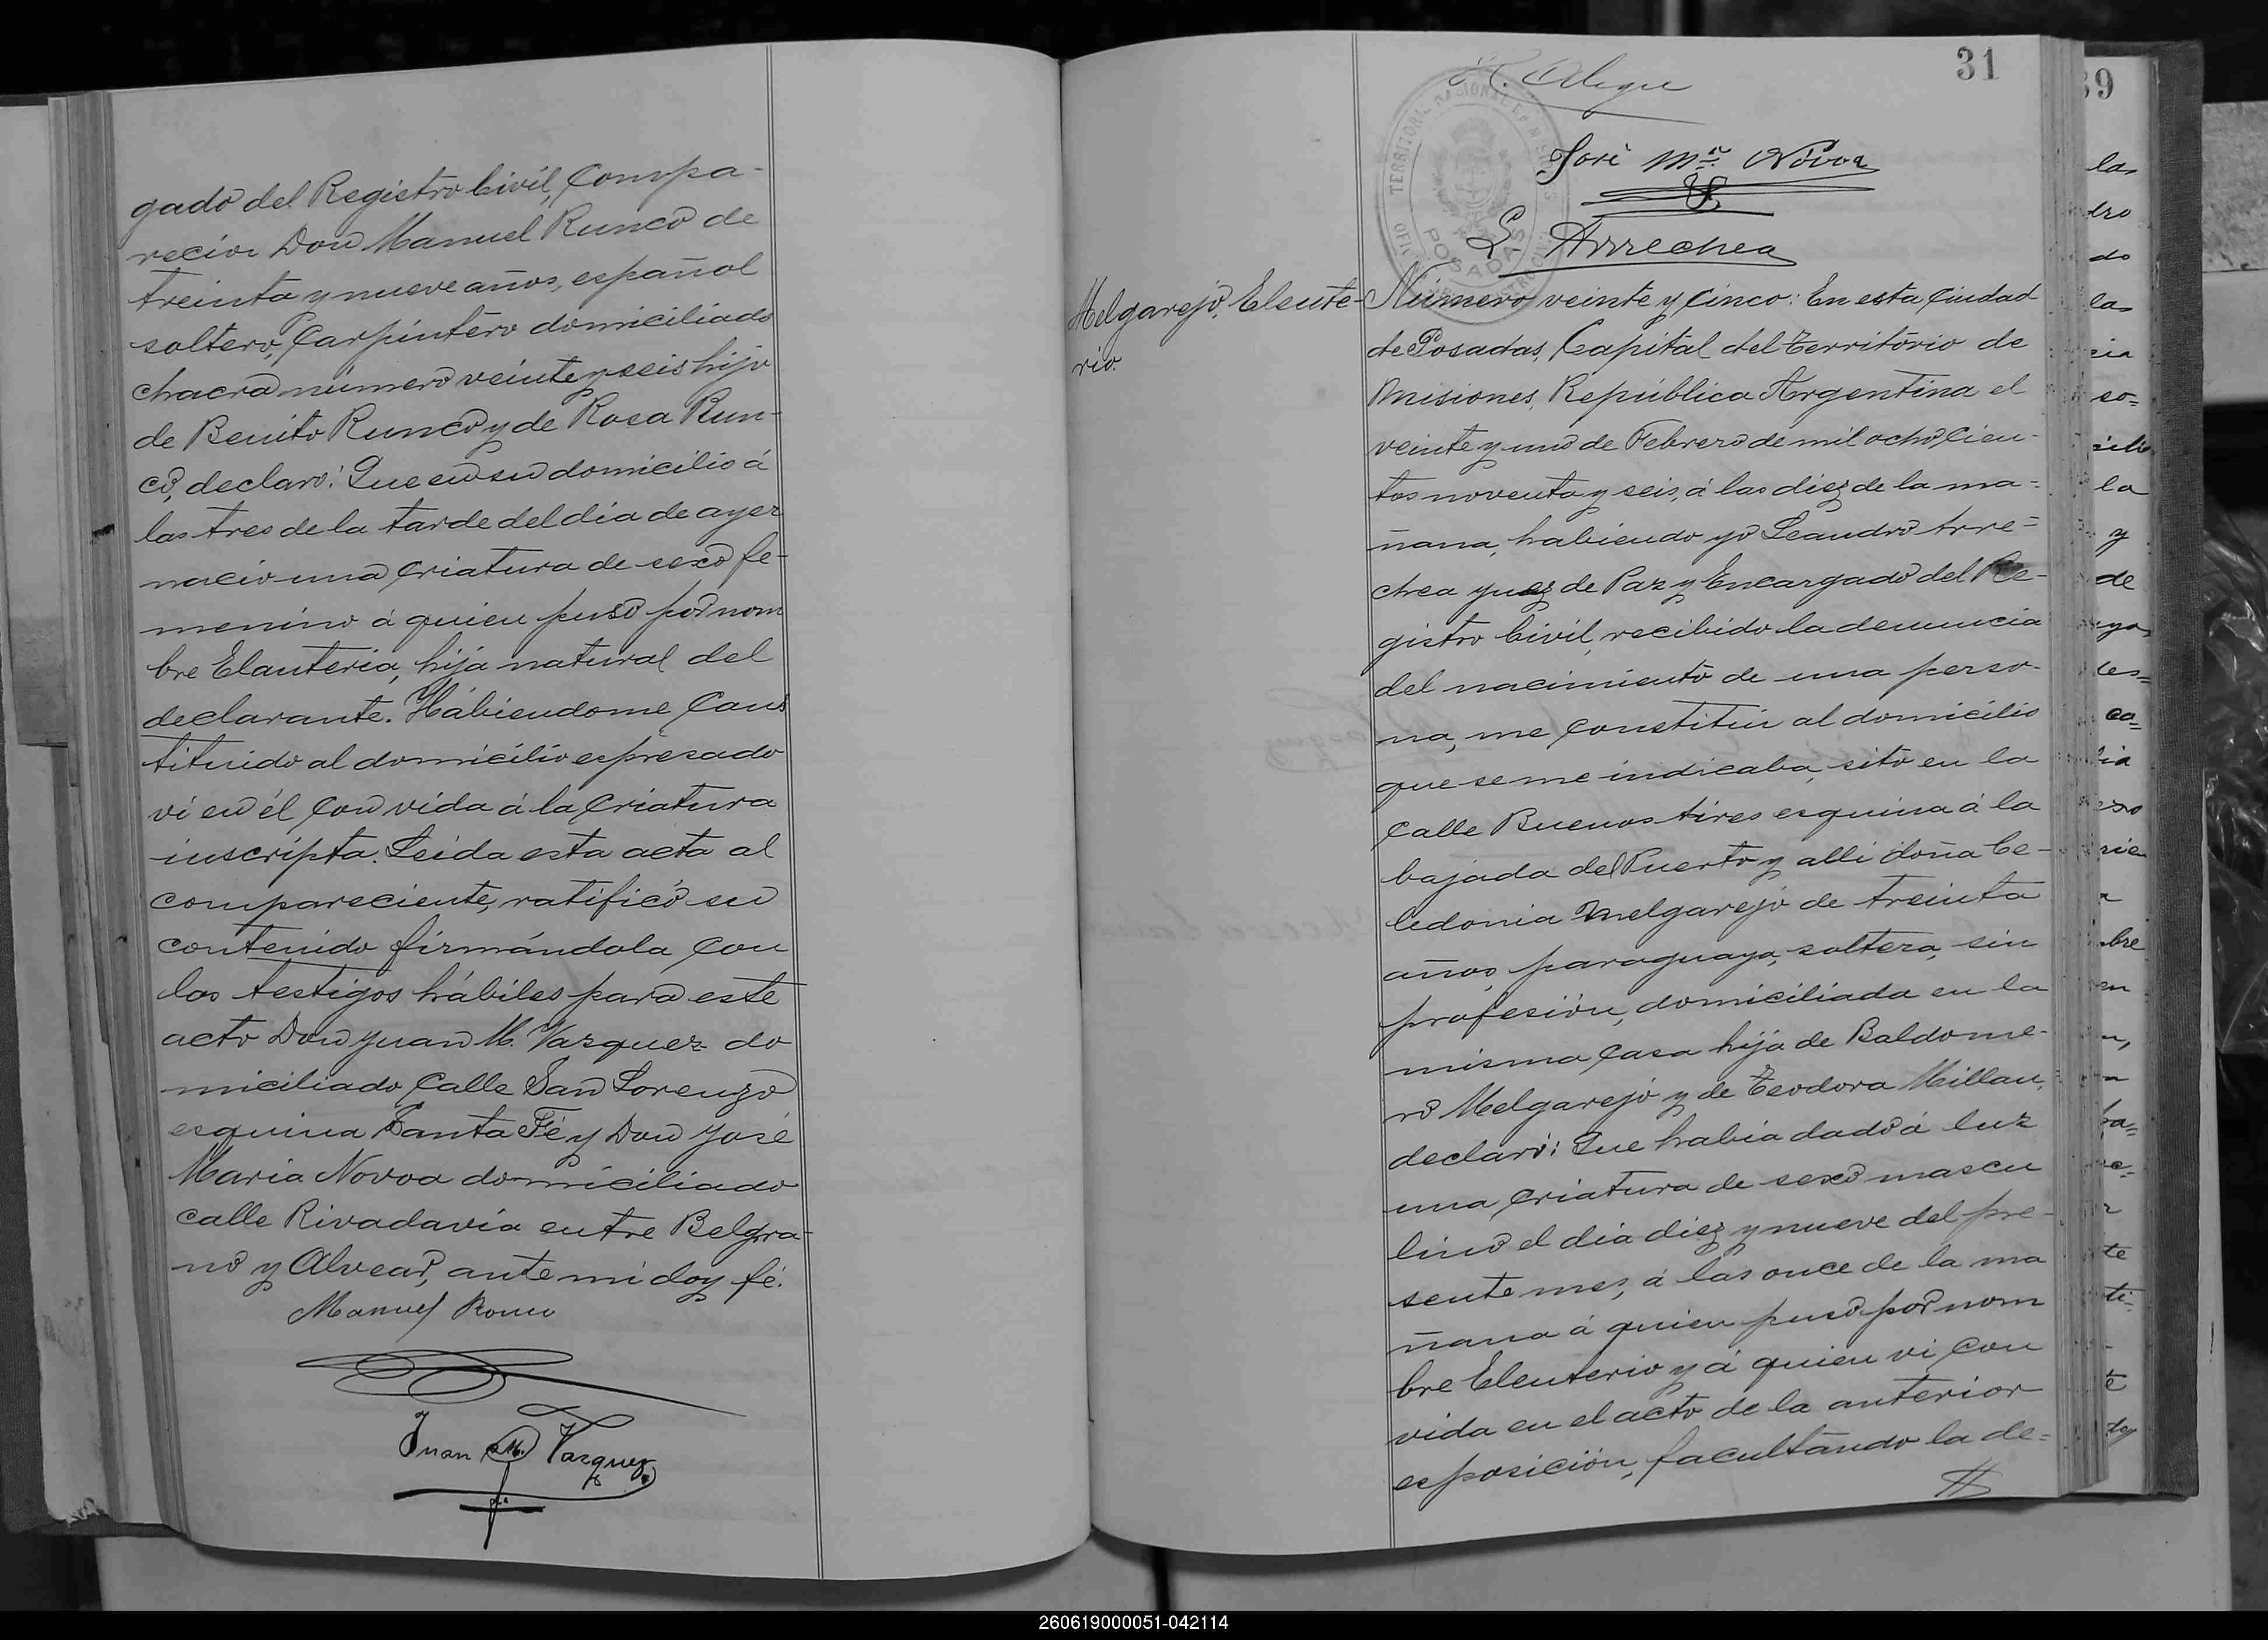 gado del Registro Civil, Compa-
reció Don Manuel Runco de
treinta y nueve años, español
soltero, Carpintero domiciliado
chacra número veinte y seis hijo
de Benito Runco y de Rosa Run-
co, declaró: Que en su domicilio á
las tres de la tarde del dia de ayer
nació una Criatura de sexo fe-
menino á quien puso por nom
bre Elauteria, hija natural del
declarante. Habiendome Cons
tituido al domicilio espresado
vi en él con vida á la Criatura
inscripta. Leida esta acta al
compareciente, ratificó su
contenido firmándola con
los testigos hábiles para este
acto Don Juan M. Vazquez do
miciliado Calle San Lorenzo
esquina Santa Fé y Don José
Maria Novoa domiciliado
calle Rivadavia entre Belgra-
no y Alvear, ante mi doy fé.
Manuel Ronco
Juan M. Vazquez
31
Alegre
José Ma. Novoa
L. Arrechea
TERRITORIO NACIONAL DE MISIONES
POSADAS
Melgarejo, Eleute-
rio.
Número veinte y cinco: En esta Ciudad
de Posadas, Capital del Territorio de
Misiones, República Argentina el
veinte y uno de Febrero de mil ochocien-
tos noventa y seis, á las diez de la ma-
ñana, habiendo yo Leandro Arre-
chea Juez de Paz y Encargado del Re-
gistro Civil, recibido la denuncia
del nacimiento de una perso-
na, me constitui al domicilio
que se me indicaba, sito en la
Calle Buenos Aires esquina á la
bajada del Puerto y alli doña Ce-
ledonia Melgarejo de treinta
años, paraguaya, soltera, sin
profesión, domiciliada en la
misma Casa hija de Baldome-
ro Melgarejo y de Teodora Millan,
declaró: Que habia dado á luz
una Criatura de sexo mascu
lino el dia diez y nueve del pre-
sente mes, á las once de la ma
ñana á quien puso por nom
bre Eleuterio y á quien vi con
vida en el acto de la anterior
esposición, facultando la de-
39
la
dro
do
la
so-
la
y
de
bre
te
ti-
te
260619000051-042114